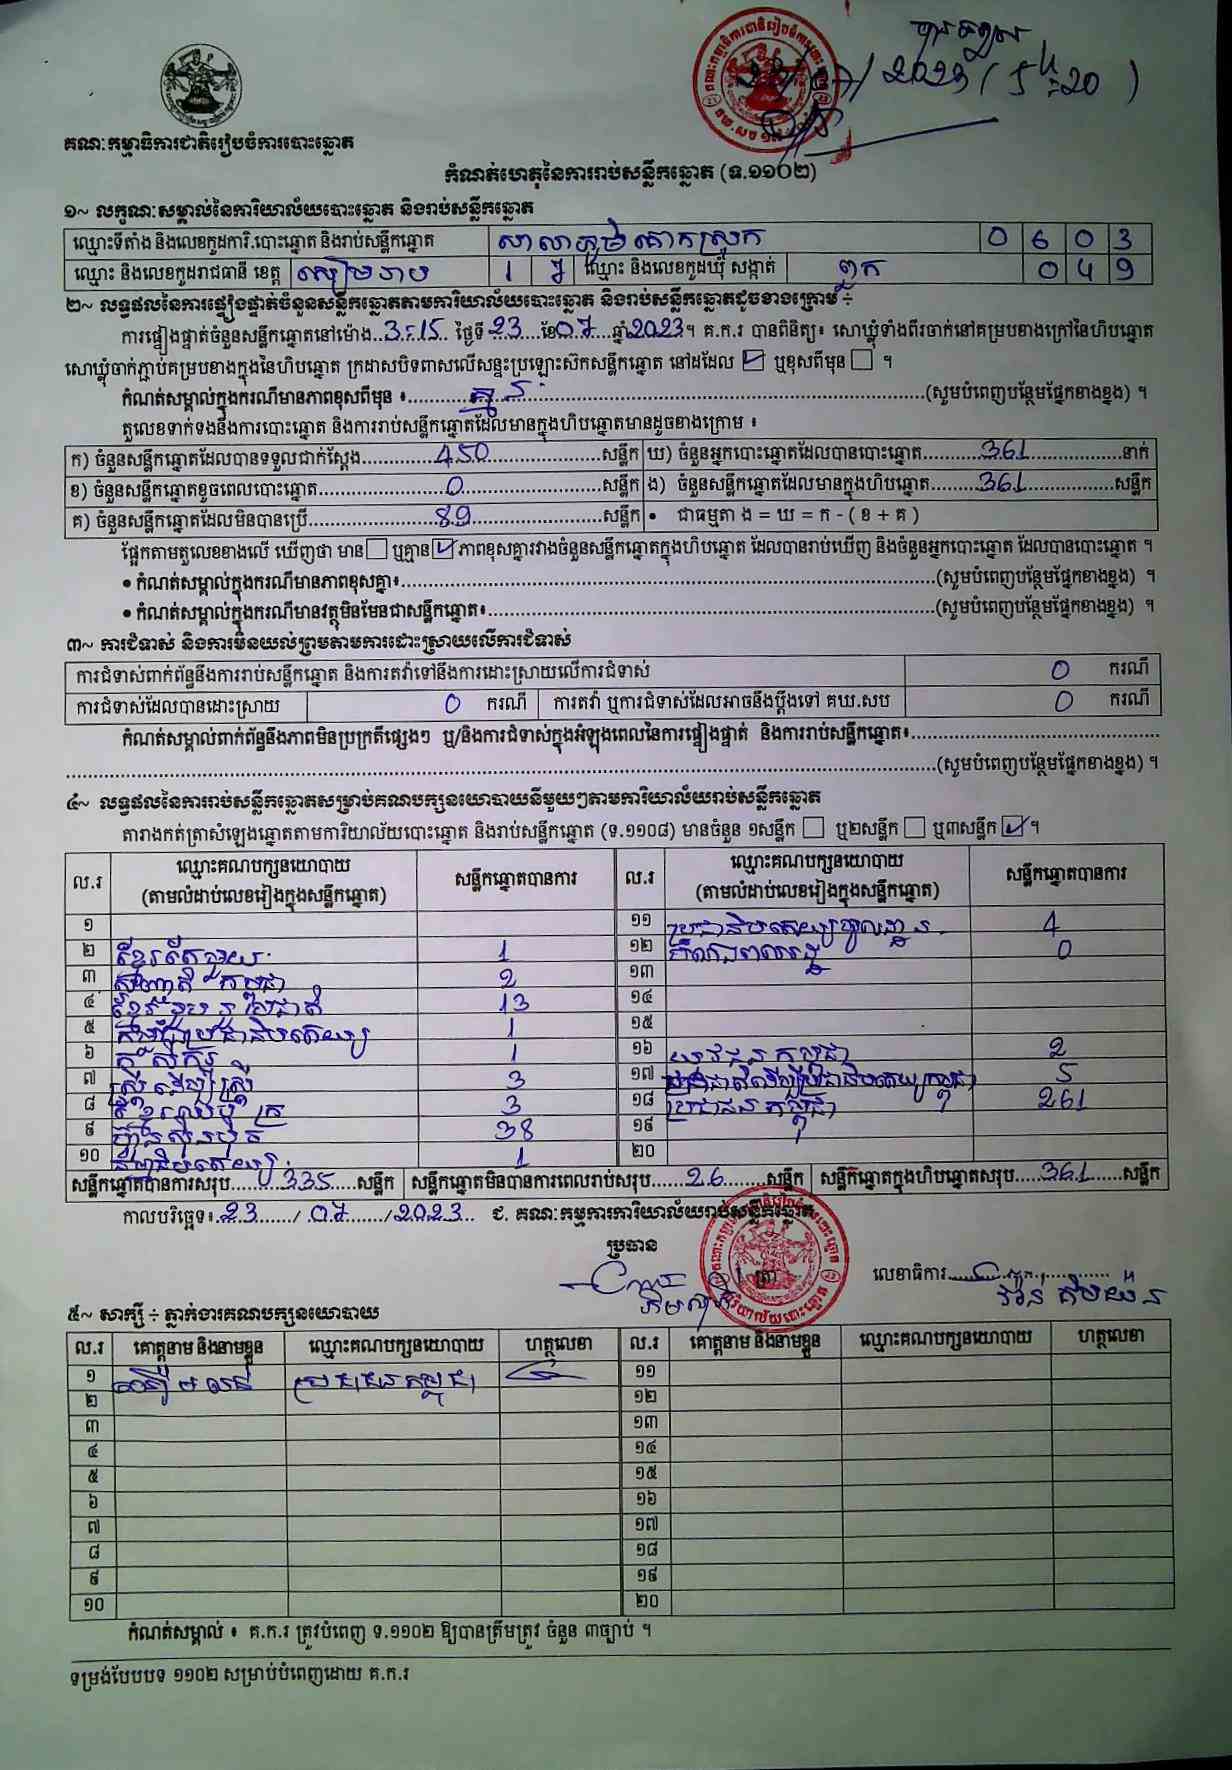 2023 ( 5h:20 )
គណៈកម្មាធិការជាតិរៀបចំការបោះឆ្នោត
កំណត់ហេតុនៃការរាប់សន្លឹកឆ្នោត (ទ.១១០២)
១~ លក្ខណៈសម្គាល់នៃការិយាល័យបោះឆ្នោត និងរាប់សន្លឹកឆ្នោត
ឈ្មោះទីតាំង និងលេខកូដការិ.បោះឆ្នោត និងរាប់សន្លឹកឆ្នោត សាលាភូមិគោកស្រុក 0 6 0 3
ឈ្មោះ និងលេខកូដរាជធានី ខេត្ត សៀមរាប 1 7 ឈ្មោះ និងលេខកូដឃុំ សង្កាត់ ពួក 0 4 9
២~ លទ្ធផលនៃការផ្ទៀងផ្ទាត់ចំនួនសន្លឹកឆ្នោតតាមការិយាល័យបោះឆ្នោត និងរាប់សន្លឹកឆ្នោតដូចខាងក្រោម ÷
ការផ្ទៀងផ្ទាត់ចំនួនសន្លឹកឆ្នោតនៅម៉ោង..3:15.. ថ្ងៃទី 23 ខែ 07 ឆ្នាំ 2023។ គ.ក.រ បានពិនិត្យ៖ សោឃ្លុំទាំងពីរចាក់នៅគម្របខាងក្រៅនៃហិបឆ្នោត
សោឃ្លុំចាក់ភ្ជាប់គម្របខាងក្នុងនៃហិបឆ្នោត ក្រដាសបិទពាសលើសន្ទះប្រឡោះស៊កសន្លឹកឆ្នោត នៅដដែល ☑ ឬខុសពីមុន ☐ ។
កំណត់សម្គាល់ក្នុងករណីមានភាពខុសពីមុន ៖ គ្មាន (សូមបំពេញបន្ថែមផ្នែកខាងខ្នង) ។
តួលេខទាក់ទងនឹងការបោះឆ្នោត និងការរាប់សន្លឹកឆ្នោតដែលមានក្នុងហិបឆ្នោតមានដូចខាងក្រោម ៖
ក) ចំនួនសន្លឹកឆ្នោតដែលបានទទួលជាក់ស្តែង 450 សន្លឹក ឃ) ចំនួនអ្នកបោះឆ្នោតដែលបានបោះឆ្នោត 361 នាក់
ខ) ចំនួនសន្លឹកឆ្នោតខូចពេលបោះឆ្នោត 0 សន្លឹក ង) ចំនួនសន្លឹកឆ្នោតដែលមានក្នុងហិបឆ្នោត 361 សន្លឹក
គ) ចំនួនសន្លឹកឆ្នោតដែលមិនបានប្រើ 89 សន្លឹក • ជាធម្មតា ង = ឃ = ក - ( ខ + គ )
ផ្អែកតាមតួលេខខាងលើ ឃើញថា មាន ☐ ឬគ្មាន ☑ ភាពខុសគ្នារវាងចំនួនសន្លឹកឆ្នោតក្នុងហិបឆ្នោត ដែលបានរាប់ឃើញ និងចំនួនអ្នកបោះឆ្នោត ដែលបានបោះឆ្នោត ។
• កំណត់សម្គាល់ក្នុងករណីមានភាពខុសគ្នា៖ (សូមបំពេញបន្ថែមផ្នែកខាងខ្នង) ។
• កំណត់សម្គាល់ក្នុងករណីមានវត្ថុមិនមែនជាសន្លឹកឆ្នោត៖ (សូមបំពេញបន្ថែមផ្នែកខាងខ្នង) ។
៣~ ការជំទាស់ និងការមិនយល់ព្រមតាមការដោះស្រាយលើការជំទាស់
ការជំទាស់ពាក់ព័ន្ធនឹងការរាប់សន្លឹកឆ្នោត និងការតវ៉ាទៅនឹងការដោះស្រាយលើការជំទាស់ 0 ករណី
ការជំទាស់ដែលបានដោះស្រាយ 0 ករណី ការតវ៉ា ឬការជំទាស់ដែលអាចនឹងប្តឹងទៅ គឃ.សប 0 ករណី
កំណត់សម្គាល់ពាក់ព័ន្ធនឹងភាពមិនប្រក្រតីផ្សេងៗ ឬ/និងការជំទាស់ក្នុងអំឡុងពេលនៃការផ្ទៀងផ្ទាត់ និងការរាប់សន្លឹកឆ្នោត៖
(សូមបំពេញបន្ថែមផ្នែកខាងខ្នង) ។
៤~ លទ្ធផលនៃការរាប់សន្លឹកឆ្នោតសម្រាប់គណបក្សនយោបាយនីមួយៗតាមការិយាល័យរាប់សន្លឹកឆ្នោត
តារាងកត់ត្រាសំឡេងឆ្នោតតាមការិយាល័យបោះឆ្នោត និងរាប់សន្លឹកឆ្នោត (ទ.១១០៨) មានចំនួន ១សន្លឹក ☐ ឬ២សន្លឹក ☐ ឬ៣សន្លឹក ☑ ។
ល.រ ឈ្មោះគណបក្សនយោបាយ (តាមលំដាប់លេខរៀងក្នុងសន្លឹកឆ្នោត) សន្លឹកឆ្នោតបានការ ល.រ ឈ្មោះគណបក្សនយោបាយ (តាមលំដាប់លេខរៀងក្នុងសន្លឹកឆ្នោត) សន្លឹកឆ្នោតបានការ
១ ១១ ប្រជាធិបតេយ្យមូលដ្ឋាន 4
២ ខ្មែរតែមួយ 1 ១២ 0
៣ សញ្ជាតិកម្ពុជា 2 ១៣
៤ ខ្មែររួបរួមជាតិ 13 ១៤
៥ 1 ១៥
៦ កសិករ 1 ១៦ យុវជនកម្ពុជា 2
៧ ស្ត្រីដើម្បីស្ត្រី 3 ១៧ 5
៨ 3 ១៨ ប្រជាជនកម្ពុជា 261
៩ ហ៊្វុនស៊ិនប៉ិច 38 ១៩
១០ 1 ២០
សន្លឹកឆ្នោតបានការសរុប 335 សន្លឹក សន្លឹកឆ្នោតមិនបានការពេលរាប់សរុប 26 សន្លឹក សន្លឹកឆ្នោតក្នុងហិបឆ្នោតសរុប 361 សន្លឹក
កាលបរិច្ឆេទ៖ 23 / 07 / 2023 ជ. គណៈកម្មការការិយាល័យរាប់សន្លឹកឆ្នោត
ប្រធាន
ត្រា លេខាធិការ
៥~ សាក្សី ÷ ភ្នាក់ងារគណបក្សនយោបាយ
ល.រ គោត្តនាម និងនាមខ្លួន ឈ្មោះគណបក្សនយោបាយ ហត្ថលេខា ល.រ គោត្តនាម និងនាមខ្លួន ឈ្មោះគណបក្សនយោបាយ ហត្ថលេខា
១ ប្រជាជនកម្ពុជា ១១
២ ១២
៣ ១៣
៤ ១៤
៥ ១៥
៦ ១៦
៧ ១៧
៨ ១៨
៩ ១៩
១០ ២០
កំណត់សម្គាល់ ៖ គ.ក.រ ត្រូវបំពេញ ទ.១១០២ ឱ្យបានត្រឹមត្រូវ ចំនួន ៣ច្បាប់ ។
ទម្រង់បែបបទ ១១០២ សម្រាប់បំពេញដោយ គ.ក.រ